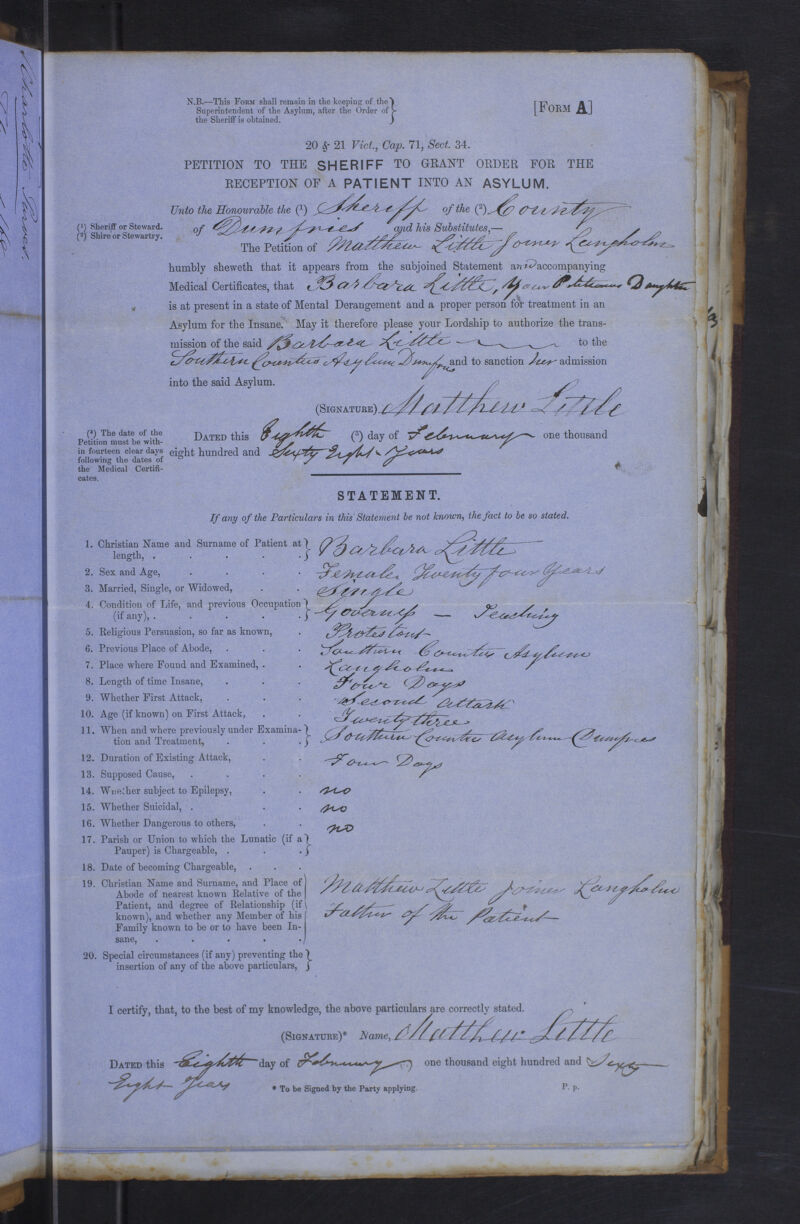 N.B.—This Form shall remain in the keeping of the
Superintendent of the Asylum, after the Order of
the Sheriff is obtained.
[Form A]
20 & 21 Vict., Cap. 71, Sect. 34.
PETITION TO THE SHERIFF TO GRANT ORDER FOR THE
RECEPTION OF A PATIENT INTO AN ASYLUM.
Unto the Honourable the (¹) Sheriff of the (²) County
(¹) Sheriff or Steward.
(²) Shire or Stewartry.
of Dumfries and his Substitutes,—
The Petition of Matthew Little Joiner Langholm
humbly sheweth that it appears from the subjoined Statement and accompanying
Medical Certificates, that Barbara Little, Your Petitioners Daughter
is at present in a state of Mental Derangement and a proper person for treatment in an
Asylum for the Insane. May it therefore please your Lordship to authorize the trans-
mission of the said Barbara Little to the
Southern Counties Asylum Dumfries and to sanction her admission
into the said Asylum.
(Signature) Matthew Little
(³) The date of the
Petition must be with-
in fourteen clear days
following the dates of
the Medical Certifi-
cates.
Dated this Eighth (³) day of February one thousand
eight hundred and Sixty Eight Years
STATEMENT.
If any of the Particulars in this Statement be not known, the fact to be so stated.
1. Christian Name and Surname of Patient at
length, . Barbara Little
2. Sex and Age, Female Twenty four Years
3. Married, Single, or Widowed, Single
4. Condition of Life, and previous Occupation
(if any), . Governess — Teaching
5. Religious Persuasion, so far as known, Protestant
6. Previous Place of Abode, Southern Counties Asylum
7. Place where Found and Examined, . Langholm
8. Length of time Insane, Four Days
9. Whether First Attack, Second attack
10. Age (if known) on First Attack, Twenty three
11. When and where previously under Examina-
tion and Treatment, Southern Counties Asylum Dumfries
12. Duration of Existing Attack, Four Days
13. Supposed Cause,
14. Whether subject to Epilepsy, no
15. Whether Suicidal, . no
16. Whether Dangerous to others, no
17. Parish or Union to which the Lunatic (if a
Pauper) is Chargeable, .
18. Date of becoming Chargeable,
19. Christian Name and Surname, and Place of
Abode of nearest known Relative of the
Patient, and degree of Relationship (if
known), and whether any Member of his
Family known to be or to have been In-
sane,
Matthew Little Joiner Langholm
Father of the Patient
20. Special circumstances (if any) preventing the
insertion of any of the above particulars,
I certify, that, to the best of my knowledge, the above particulars are correctly stated.
(Signature)* Name, Matthew Little
Dated this Eighth day of February one thousand eight hundred and Sixty
Eight Years
* To be Signed by the Party applying.
P. p.